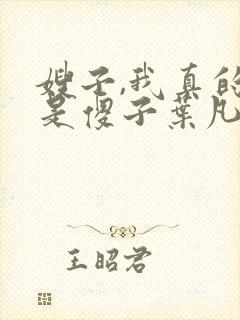 嫂子,我真的
是傻子葉凡
王昭君